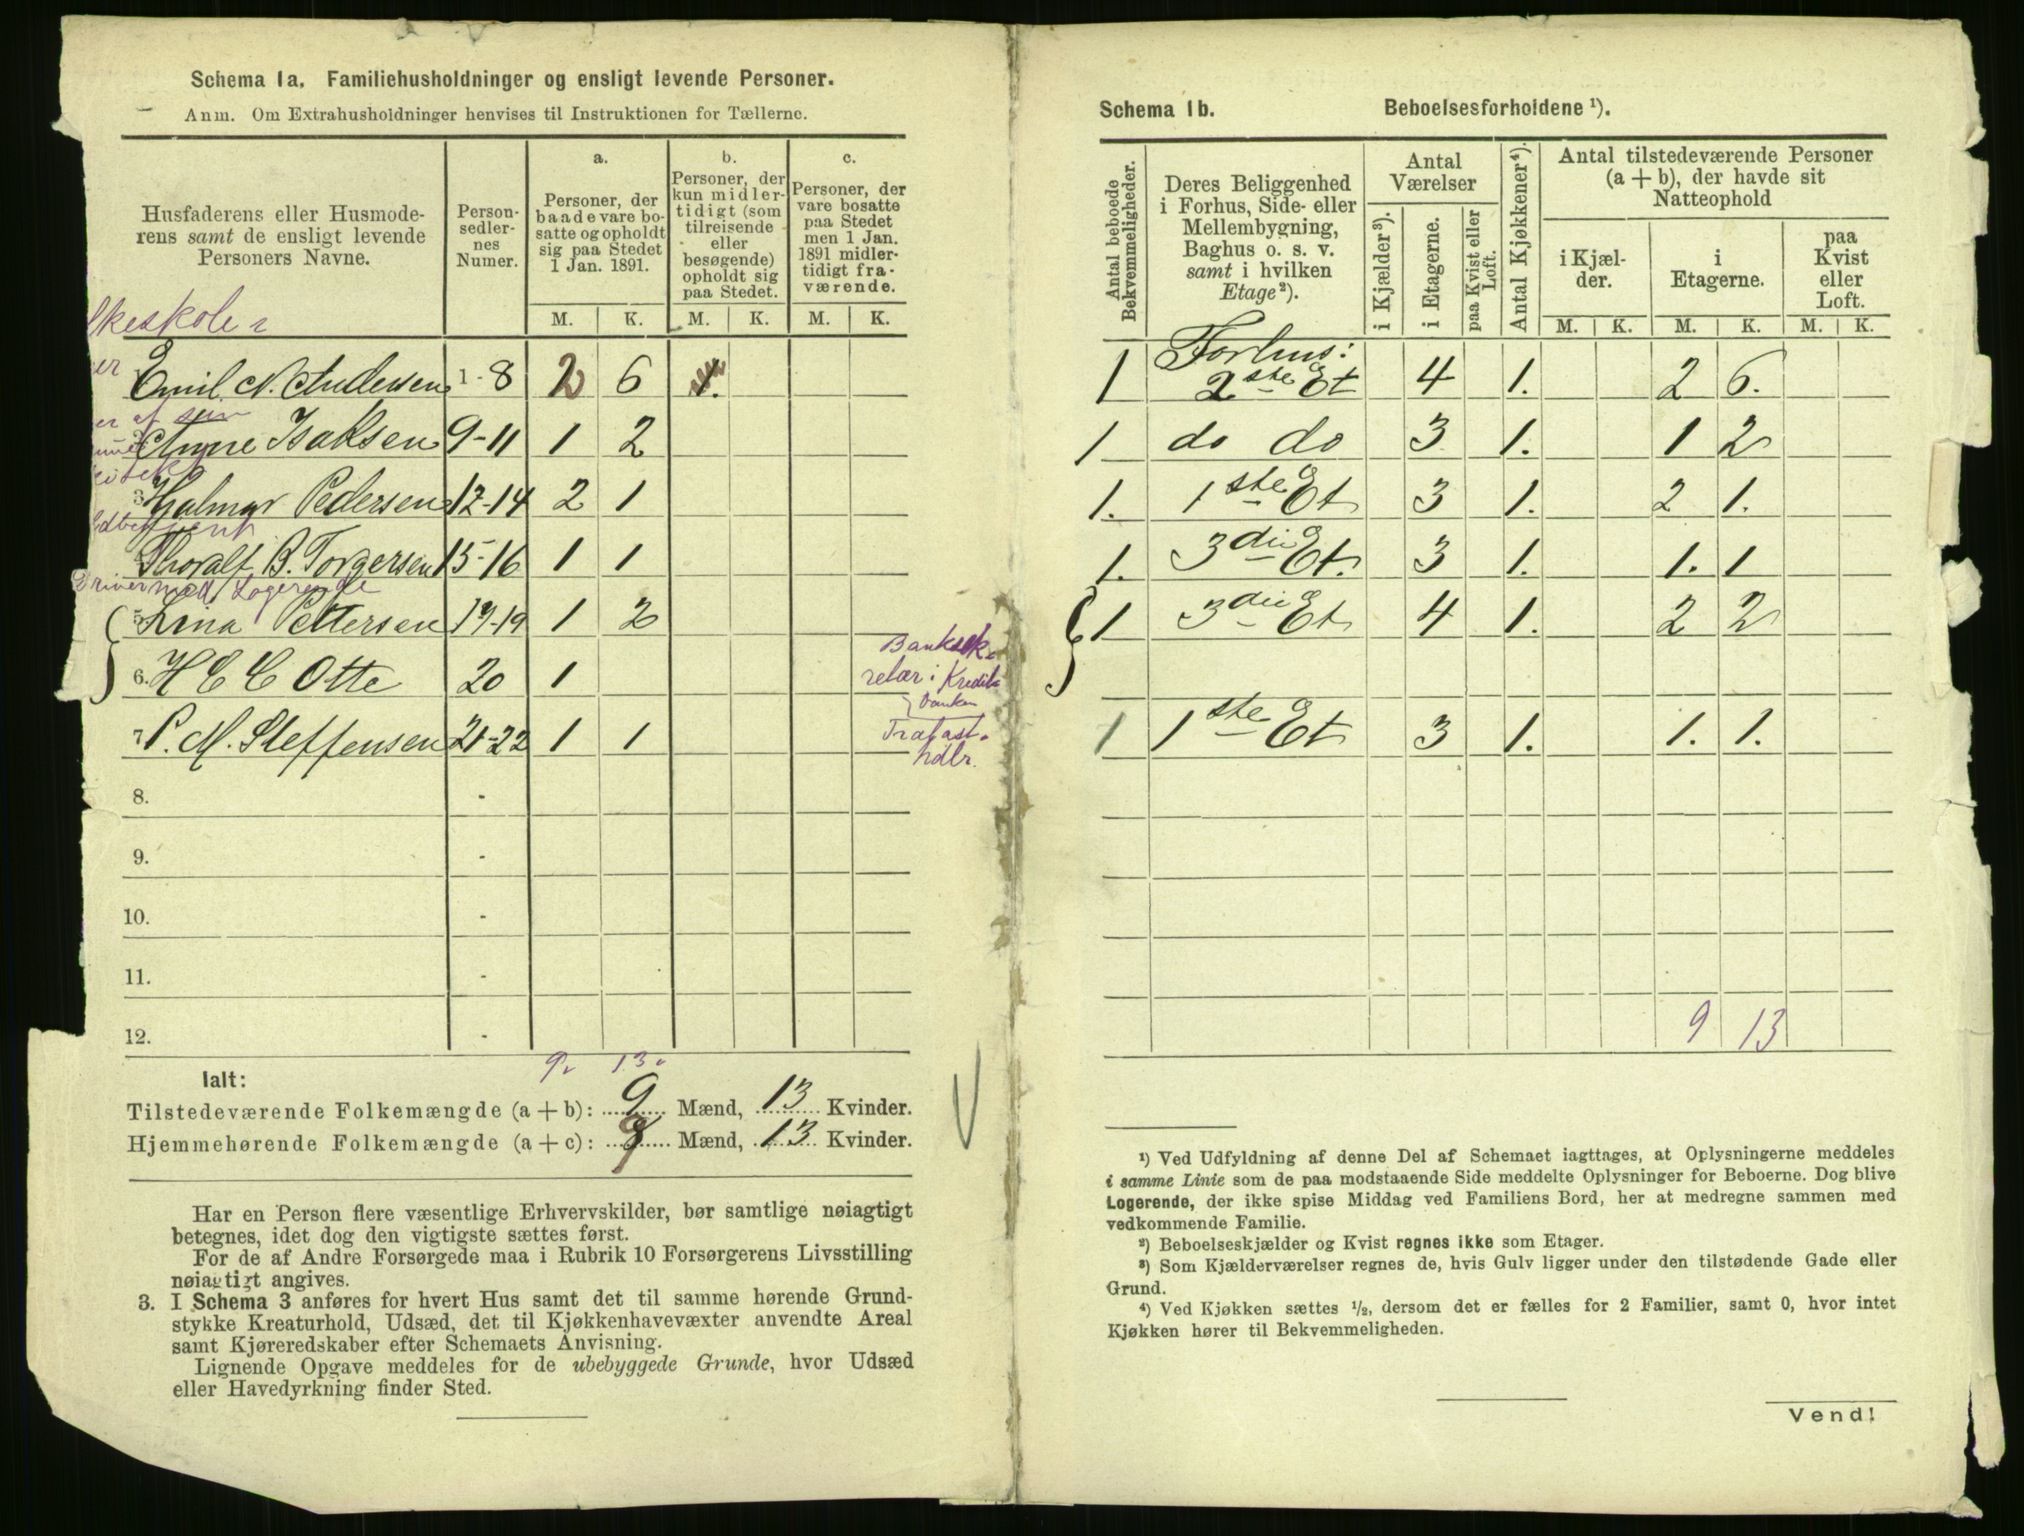 Schema 1a. Familiehusholdninger og ensligt levende Personer.
Anm. Om Extrahusholdninger henvises til Instruktionen for Tællerne.
Husfaderens eller Husmode-
rens samt de ensligt levende
Personers Navne.
Person-
sedler-
nes
Numer.
a.
Personer, der
baade vare bo-
satte og opholdt
sig paa Stedet
1 Jan. 1891.
b.
Personer, der
kun midler-
tidigt (som
tilreisende
eller
besøgende)
opholdt sig
paa Stedet.
c.
Personer, der
vare bosatte
paa Stedet
men 1 Jan.
1891 midler-
tidigt fra-
værende.
M. K. M. K. M. K.
lkeskole
er
Emil N. Andersen 1-8 2 6 1.
er af
Anne Isaksen 9-11 1 2
3. Hjalmar Pedersen 12-14 2 1
Thoralf B. Torgersen 15-16 1 1
Driver med Logerende
5. Lina Pettersen 17-19 1 2
6. H E C Otte 20 1
Banksek-
relær i Kredit-
banken
7. P. M. Steffensen 21-22 1 1
Trælast-
hdlr.
8. -
9. -
10. -
11. -
12. -
9. 13.
Ialt:
Tilstedeværende Folkemængde (a + b): 9 Mænd, 13 Kvinder.
Hjemmehørende Folkemængde (a + c): 9 Mænd, 13 Kvinder.
Har en Person flere væsentlige Erhvervskilder, bør samtlige nøiagtigt
betegnes, idet dog den vigtigste sættes først.
For de af Andre Forsørgede maa i Rubrik 10 Forsørgerens Livsstilling
nøiagtigt angives.
3. I Schema 3 anføres for hvert Hus samt det til samme hørende Grund-
stykke Kreaturhold, Udsæd, det til Kjøkkenhavevæxter anvendte Areal
samt Kjøreredskaber efter Schemaets Anvisning.
Lignende Opgave meddeles for de ubebyggede Grunde, hvor Udsæd
eller Havedyrkning finder Sted.
Schema 1b. Beboelsesforholdene ¹).
Antal beboede
Bekvemmeligheder.
Deres Beliggenhed
i Forhus, Side- eller
Mellembygning,
Baghus o. s. v.
samt i hvilken
Etage²).
Antal
Værelser
i Kjælder³).
i Etagerne.
paa Kvist eller
Loft.
Antal Kjøkkener⁴).
Antal tilstedeværende Personer
(a + b), der havde sit
Natteophold
i Kjæl-
der.
i
Etagerne.
paa
Kvist
eller
Loft.
M. K. M. K. M. K.
Forhus:
1 2ste Et 4 1. 2 6.
1 do do 3 1. 1 2
1. 1ste Et 3 1. 2 1.
1. 3die Et. 3 1. 1. 1
1 3die Et 4 1. 2 2
1 1ste Et 3 1. 1. 1.
9 13
¹) Ved Udfyldning af denne Del af Schemaet iagttages, at Oplysningerne meddeles
i samme Linie som de paa modstaaende Side meddelte Oplysninger for Beboerne. Dog blive
Logerende, der ikke spise Middag ved Familiens Bord, her at medregne sammen med
vedkommende Familie.
²) Beboelseskjælder og Kvist regnes ikke som Etager.
³) Som Kjælderværelser regnes de, hvis Gulv ligger under den tilstødende Gade eller
Grund.
⁴) Ved Kjøkken sættes ½, dersom det er fælles for 2 Familier, samt 0, hvor intet
Kjøkken hører til Bekvemmeligheden.
Vend!